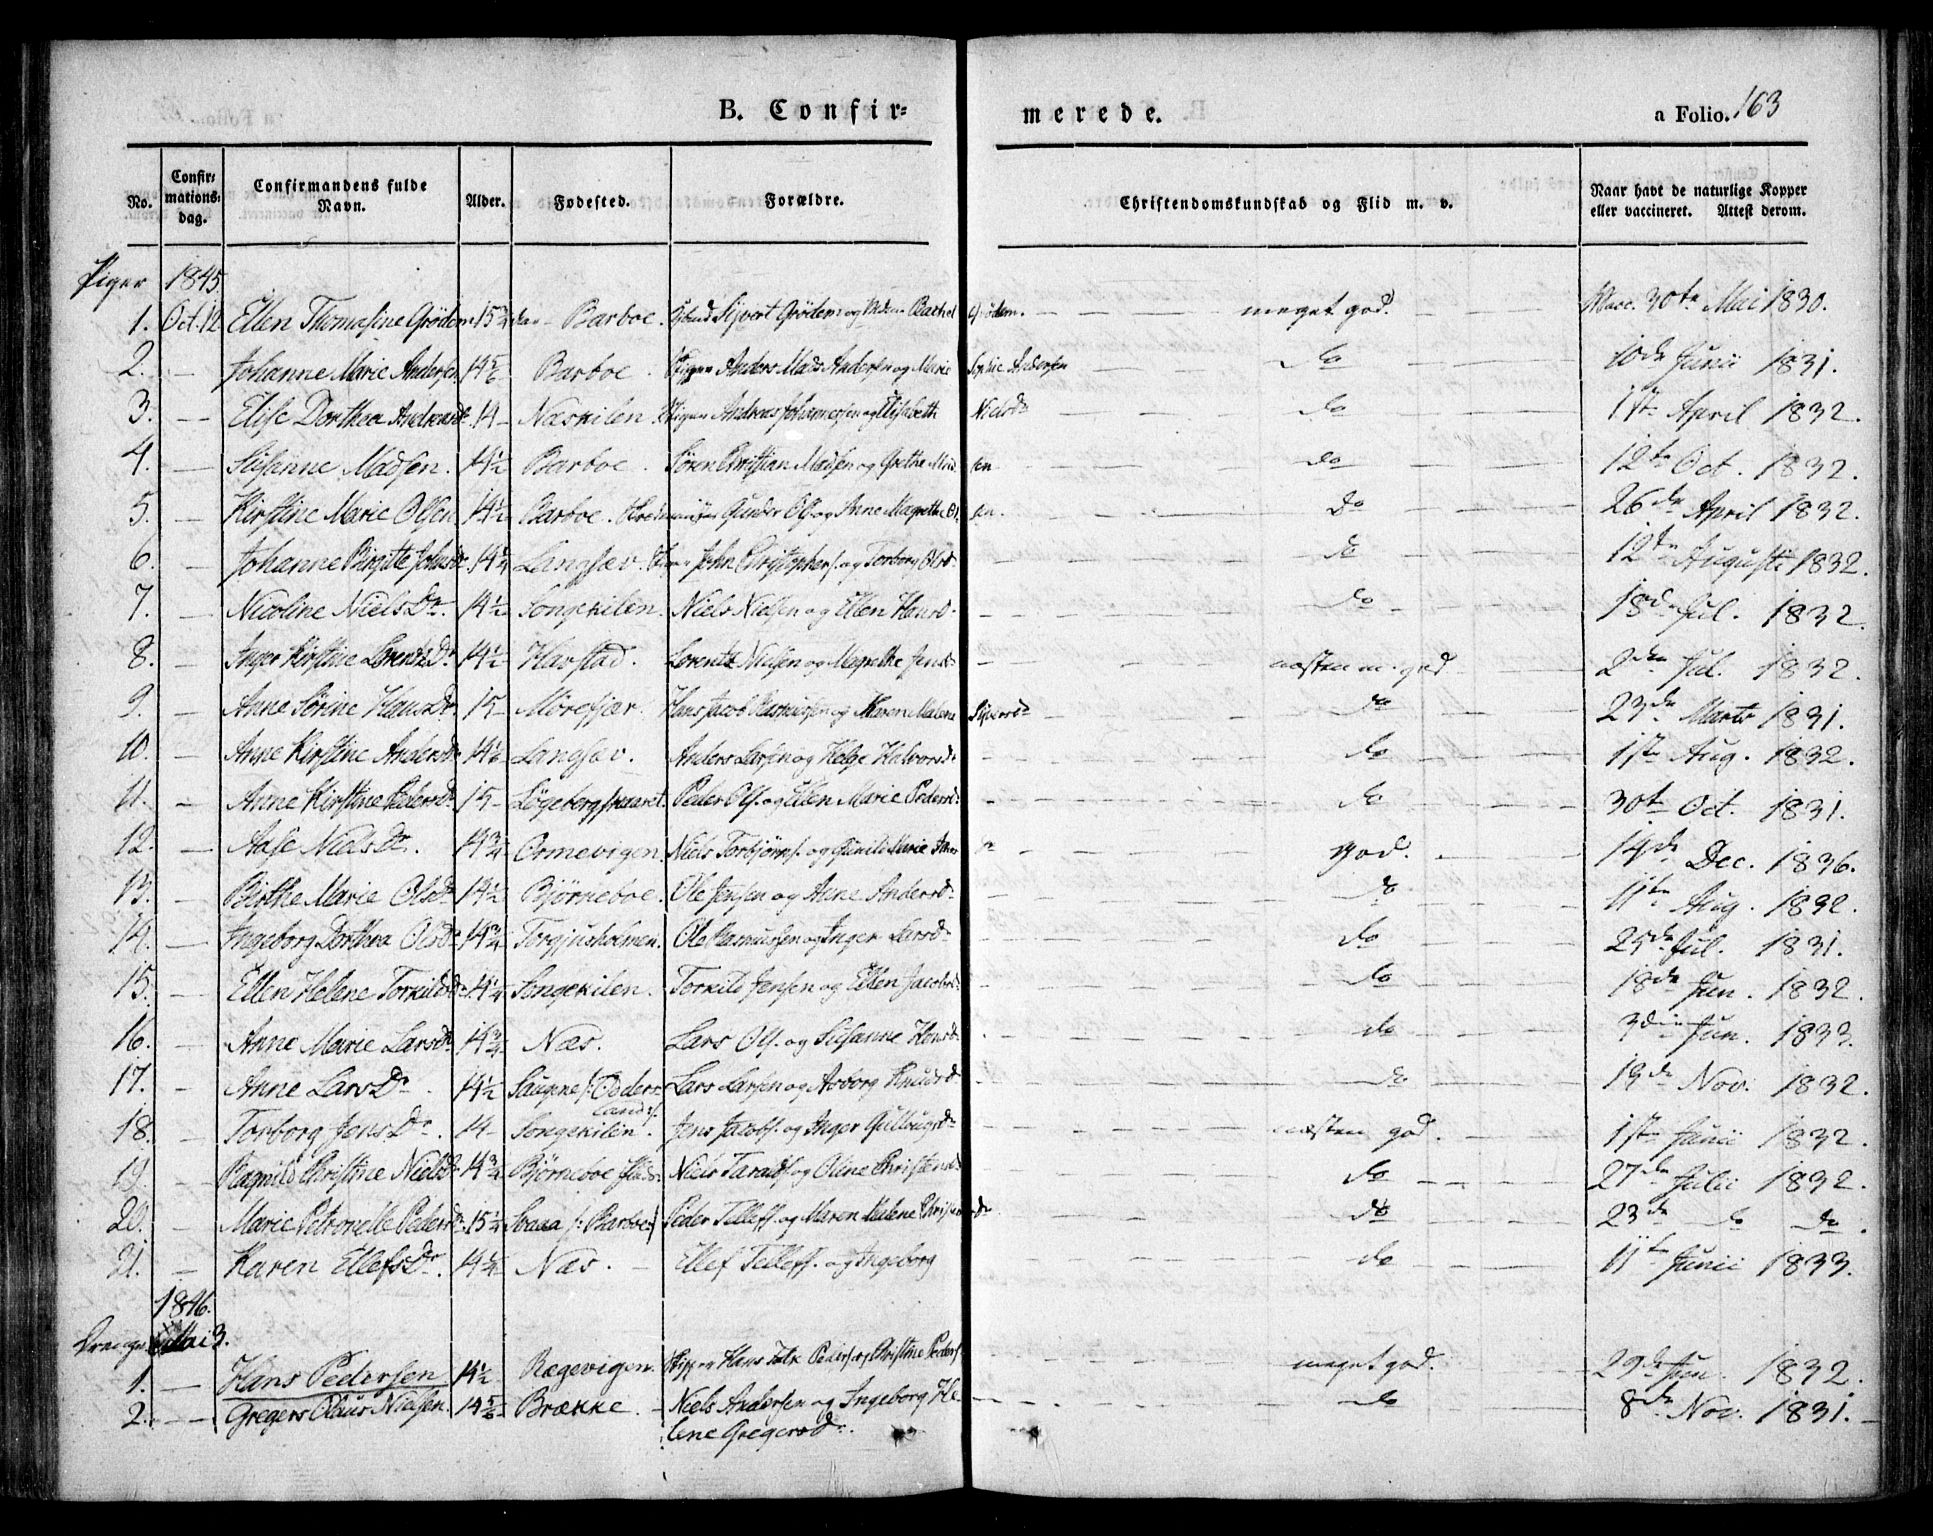 B. Confir=
merede.
a Folio. 163
No. Confir=mations=dag. Confirmandens fulde Navn. Alder. Fødested. Forældre. Christendomskundskab og Flid m. v. Naar havt de naturlige Kopper eller vaccineret. Attest derom.
Piger 1845
1. Oct. 12 Ellen Thomasine Grödem 15 3/4 Barboe. Sivert Grödem og Barthel Grödem. meget god. Vacc. 30te Mai 1830.
2. — Johanne Marie Andersen 14 5/6 Barboe. Skipper Anders Mads Andersen og Marie Sophie Andersen do 10de Junii 1831.
3. — Elise Dorthea Andreasd. 14 Næskilen. Skipper Andreas Johannessen og Elisabeth Nielsd. do 1ste April 1832.
4. — Susanne Madsen. 14 1/2 Barboe. Sören Christian Madsen og Grethe Madsen do 12te Oct. 1832.
5. — Kirstine Marie Olsen 14 1/2 Barboe. Gunder Ols. og Anne Magrethe Olsen. Do 26de April 1832.
6. — Johanne Birgitte Johnsd. 14 1/4 Langsæv. John Christophers. og Torborg Olsd. do 12te Augusti 1832.
7. — Nicoline NielsDr. 14 1/2 Songekilen. Niels Nielsen og Ellen Hansd. do 18de Jul. 1832.
8. — Inger Kirstine LorentzDr. 14 1/2 Havstad. Lorentz Nielsen og Magrethe Jensd. næsten m. god 2den Jul. 1832.
9. — Anne Sörine HansDr. 15 Mörefjær. Hans Jacob Rasmussen og Maren Malene Siversd. do 23de Marts 1831.
10. — Anne Kirstine Andersd. 14 1/6 Langsæv. Anders Larsen og Helge Halvorsd. do 1ste Aug. 1832.
11. — Anne Kirstine Pedersd. 15 Peder Ols. og Ellen Marie Pedersd. do 30te Oct. 1831.
12. — Aase NielsDr. 14 3/4 Ormevigen. Niels Torbjörns. og Gunild Marie god. 14de Dec. 1836.
13. — Birthe Marie Olsd. 14 1/2 Björneboe. Ole Jensen og Anne Andersd. do 11te Aug. 1832.
14. — Ingeborg Dorthea Olsd. 14 3/4 Torgjusholmen. Ole Rasmussen og Inger Larsd. do 25de Jul. 1831.
15. — Ellen Helene Torkildsd. 14 1/4 Songekilen. Torkild Jensen og Ellen Jacobsd. do 18de Jun. 1832.
16. — Anne Marie Larsd. 14 3/4 Næs. Lars Ols. og Susanne Hansd. do 3die Jun. 1833.
17. — Anne LarsDr. 14 1/2 Saugene /: Pedersland :/ Lars Larsen og Asborg Knudsd. do 19de Nov. 1832.
18. — Torborg JensDr. 14 Songekilen. Jens Jacobs. og Inger Gullougsd. næsten god. 1ste Junii 1832.
19. — Ragnild Christine Nielsd. 14 3/4 Björneboe Niels Taralds. og Oline Christensd. do 27de Julii 1832.
20. — Marie Petronelle Pedersd. 15 1/4 /: Barboe :/ Peder Tellefs. og Maren Malene do 23de do do.
21. — Karen EllefsDr. 14 1/4 Næs. — Ellef Tellefs. og Ingeborg do 11te Junii 1833.
1846.
Drenge Mai 3.
1. — Hans Pedersen 14 1/2 Rægevigen. Skipper Hans Falk Peders. og Christine Peders. meget god. 29de Jun. 1832.
2. — Gregers Olaus Nielsen. 14 5/6 Brække. Niels Andersen og Ingeborg Helene Gregersd. do 8de Nov. 1831.